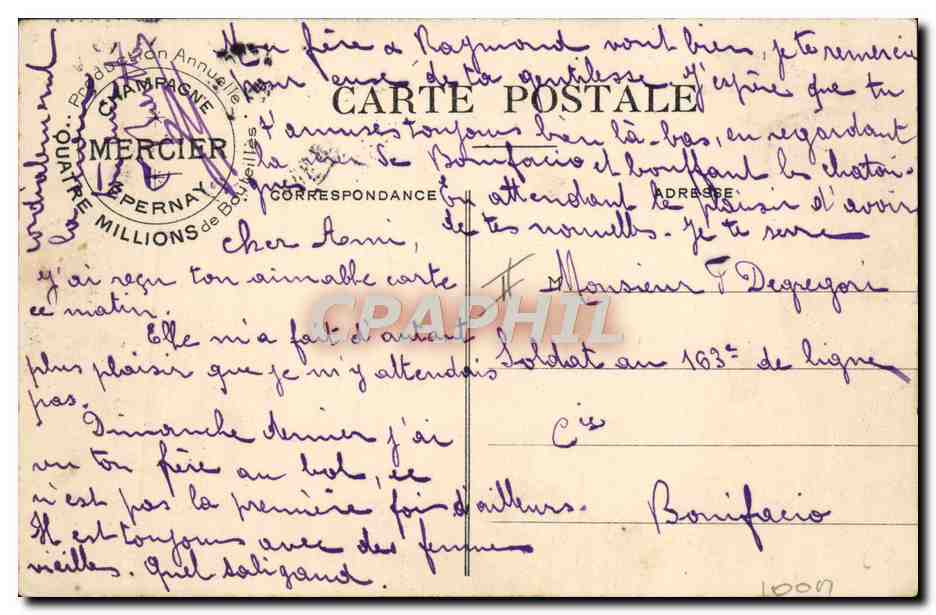 Production Annuelle
CHAMPAGNE
MERCIER
EPERNAY
QUATRE MILLIONS de Bouteilles
CARTE POSTALE
CORRESPONDANCE
ADRESSE
Cher Ami,
J'ai reçu ton aimable carte
ce matin.
Elle m'a fait d'autant
plus plaisir que je m'y attendais
pas.
Dimanche dernier j'ai
vu ton frère au bal, ce
n'est pas la première fois d'ailleurs.
Il est toujours avec des femmes
vieilles. Quel saligaud.
Mon frère & Raymond vont bien, je te remercie
pour eux de ta gentillesse. J'espère que tu
t'amuses toujours bien là-bas, en regardant
la mer de Bonifacio et bouffant les chatai-
gnes. En attendant le plaisir d'avoir
de tes nouvelles. Je te serre
cordialement
la main
Monsieur F Degregori
Soldat au 163e de ligne
Cie
Bonifacio
CPAPHIL
100M